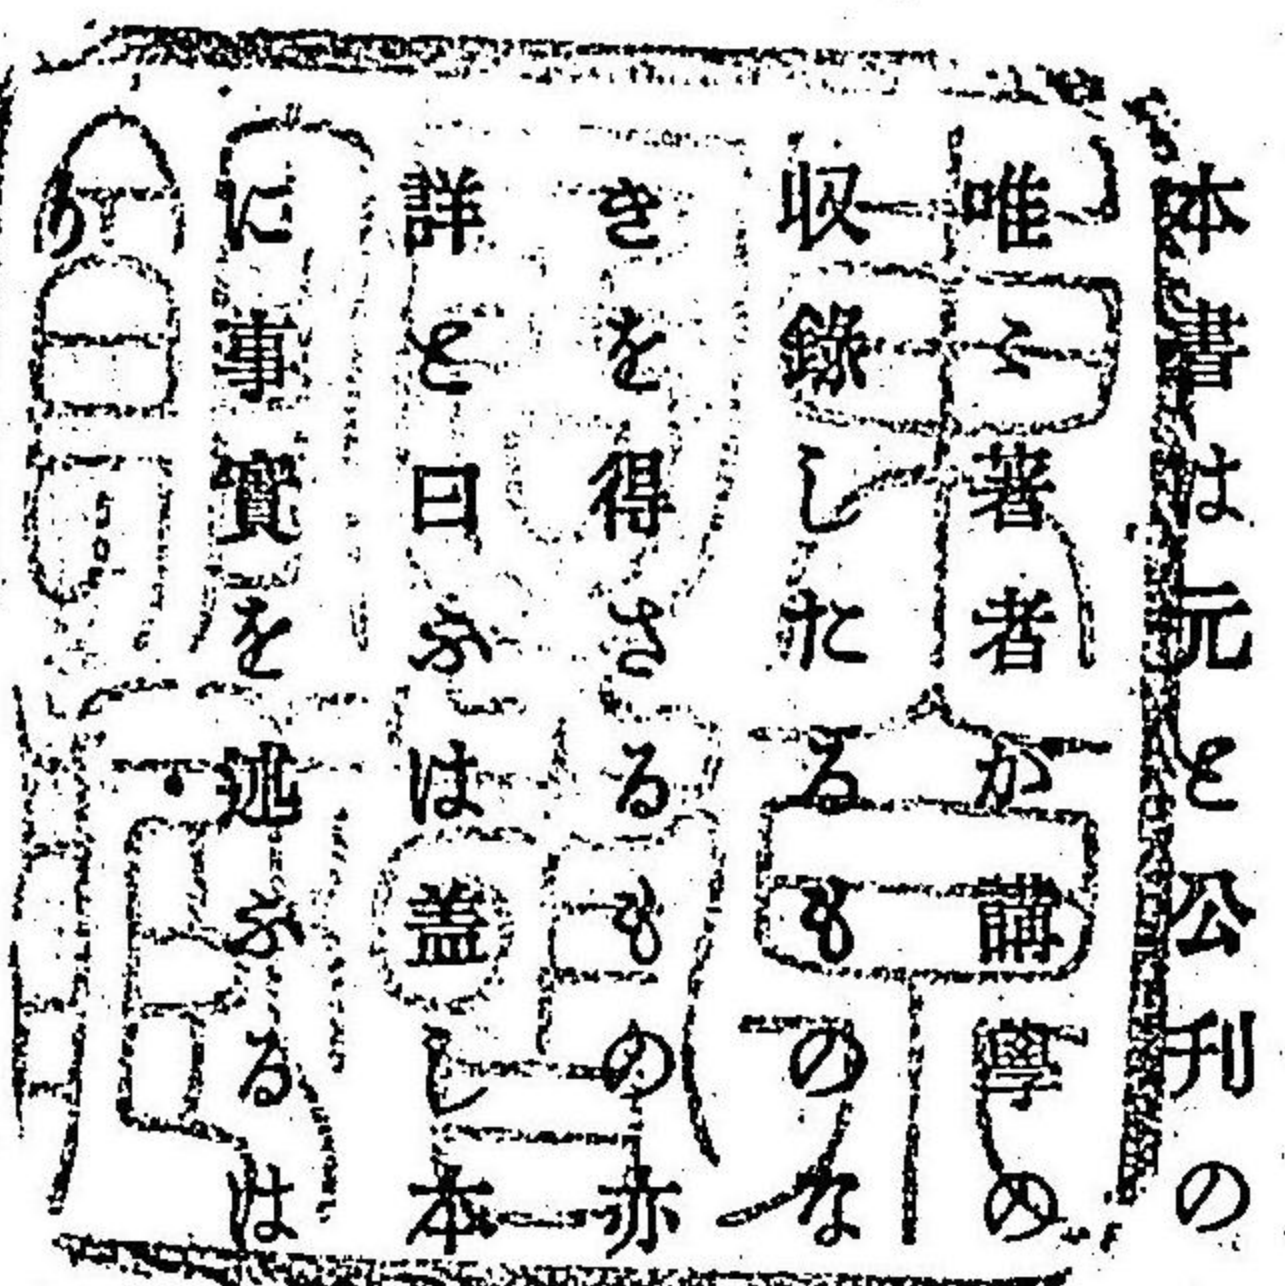 本書は元と公刊の
唯〻著者か講學の
収錄したるものな
きを得さるもの亦
詳と曰ふは盖し本
に事實を述ふるは
り